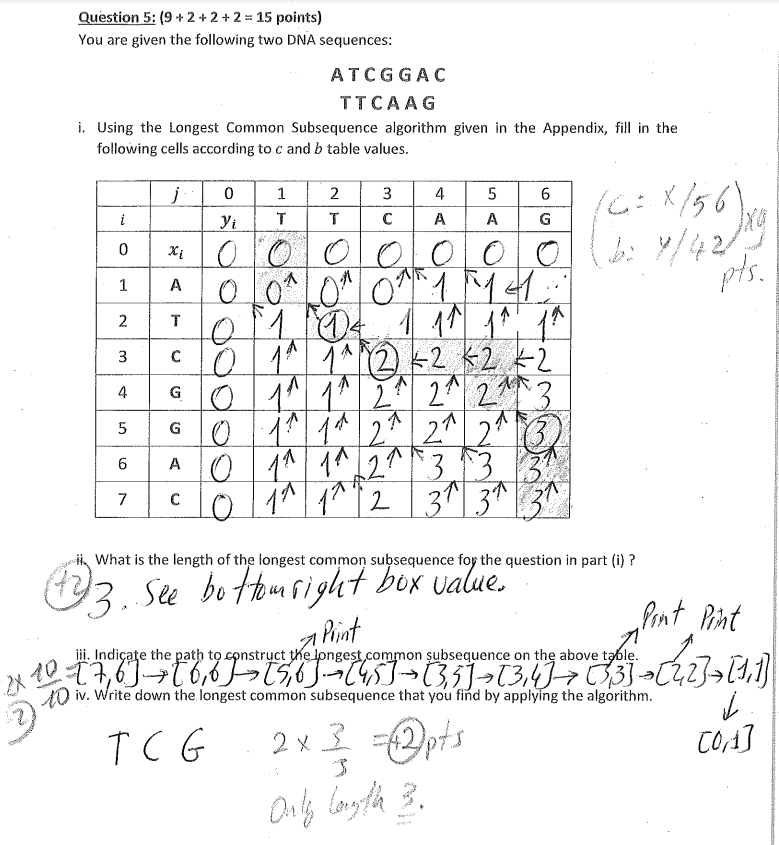 Question 5: (9 + 2 + 2 + 2 = 15 points)
You are given the following two DNA sequences:
A T C G G A C
T T C A A G
i. Using the Longest Common Subsequence algorithm given in the Appendix, fill in the
following cells according to c and b table values.
j 0 1 2 3 4 5 6
i yi T T C A A G
0 xi 0 0 0 0 0 0 0
1 A 0 0↑ 0↑ 0↑ ↖1 ↖1 ←1
2 T 0 ↖1 ↖1 ←1 1↑ 1↑ 1↑
3 C 0 1↑ 1↑ ↖2 ←2 ←2 ←2
4 G 0 1↑ 1↑ 2↑ 2↑ 2↑ ↖3
5 G 0 1↑ 1↑ 2↑ 2↑ 2↑ ↖3
6 A 0 1↑ 1↑ 2↑ ↖3 ↖3 3↑
7 C 0 1↑ 1↑ ↖2 3↑ 3↑ 3↑
(c: x/56
b: y/42) x9
pts.
ii. What is the length of the longest common subsequence for the question in part (i) ?
+2 3. See bottom right box value.
Print Print Print
iii. Indicate the path to construct the longest common subsequence on the above table.
2x 10/10 = [7,6]→[6,6]→[5,6]→[4,5]→[3,5]→[3,4]→[3,3]→[2,2]→[1,1]
↓
[0,1]
2
iv. Write down the longest common subsequence that you find by applying the algorithm.
T C G 2 x 3/3 = +2 pts
Only length 3.